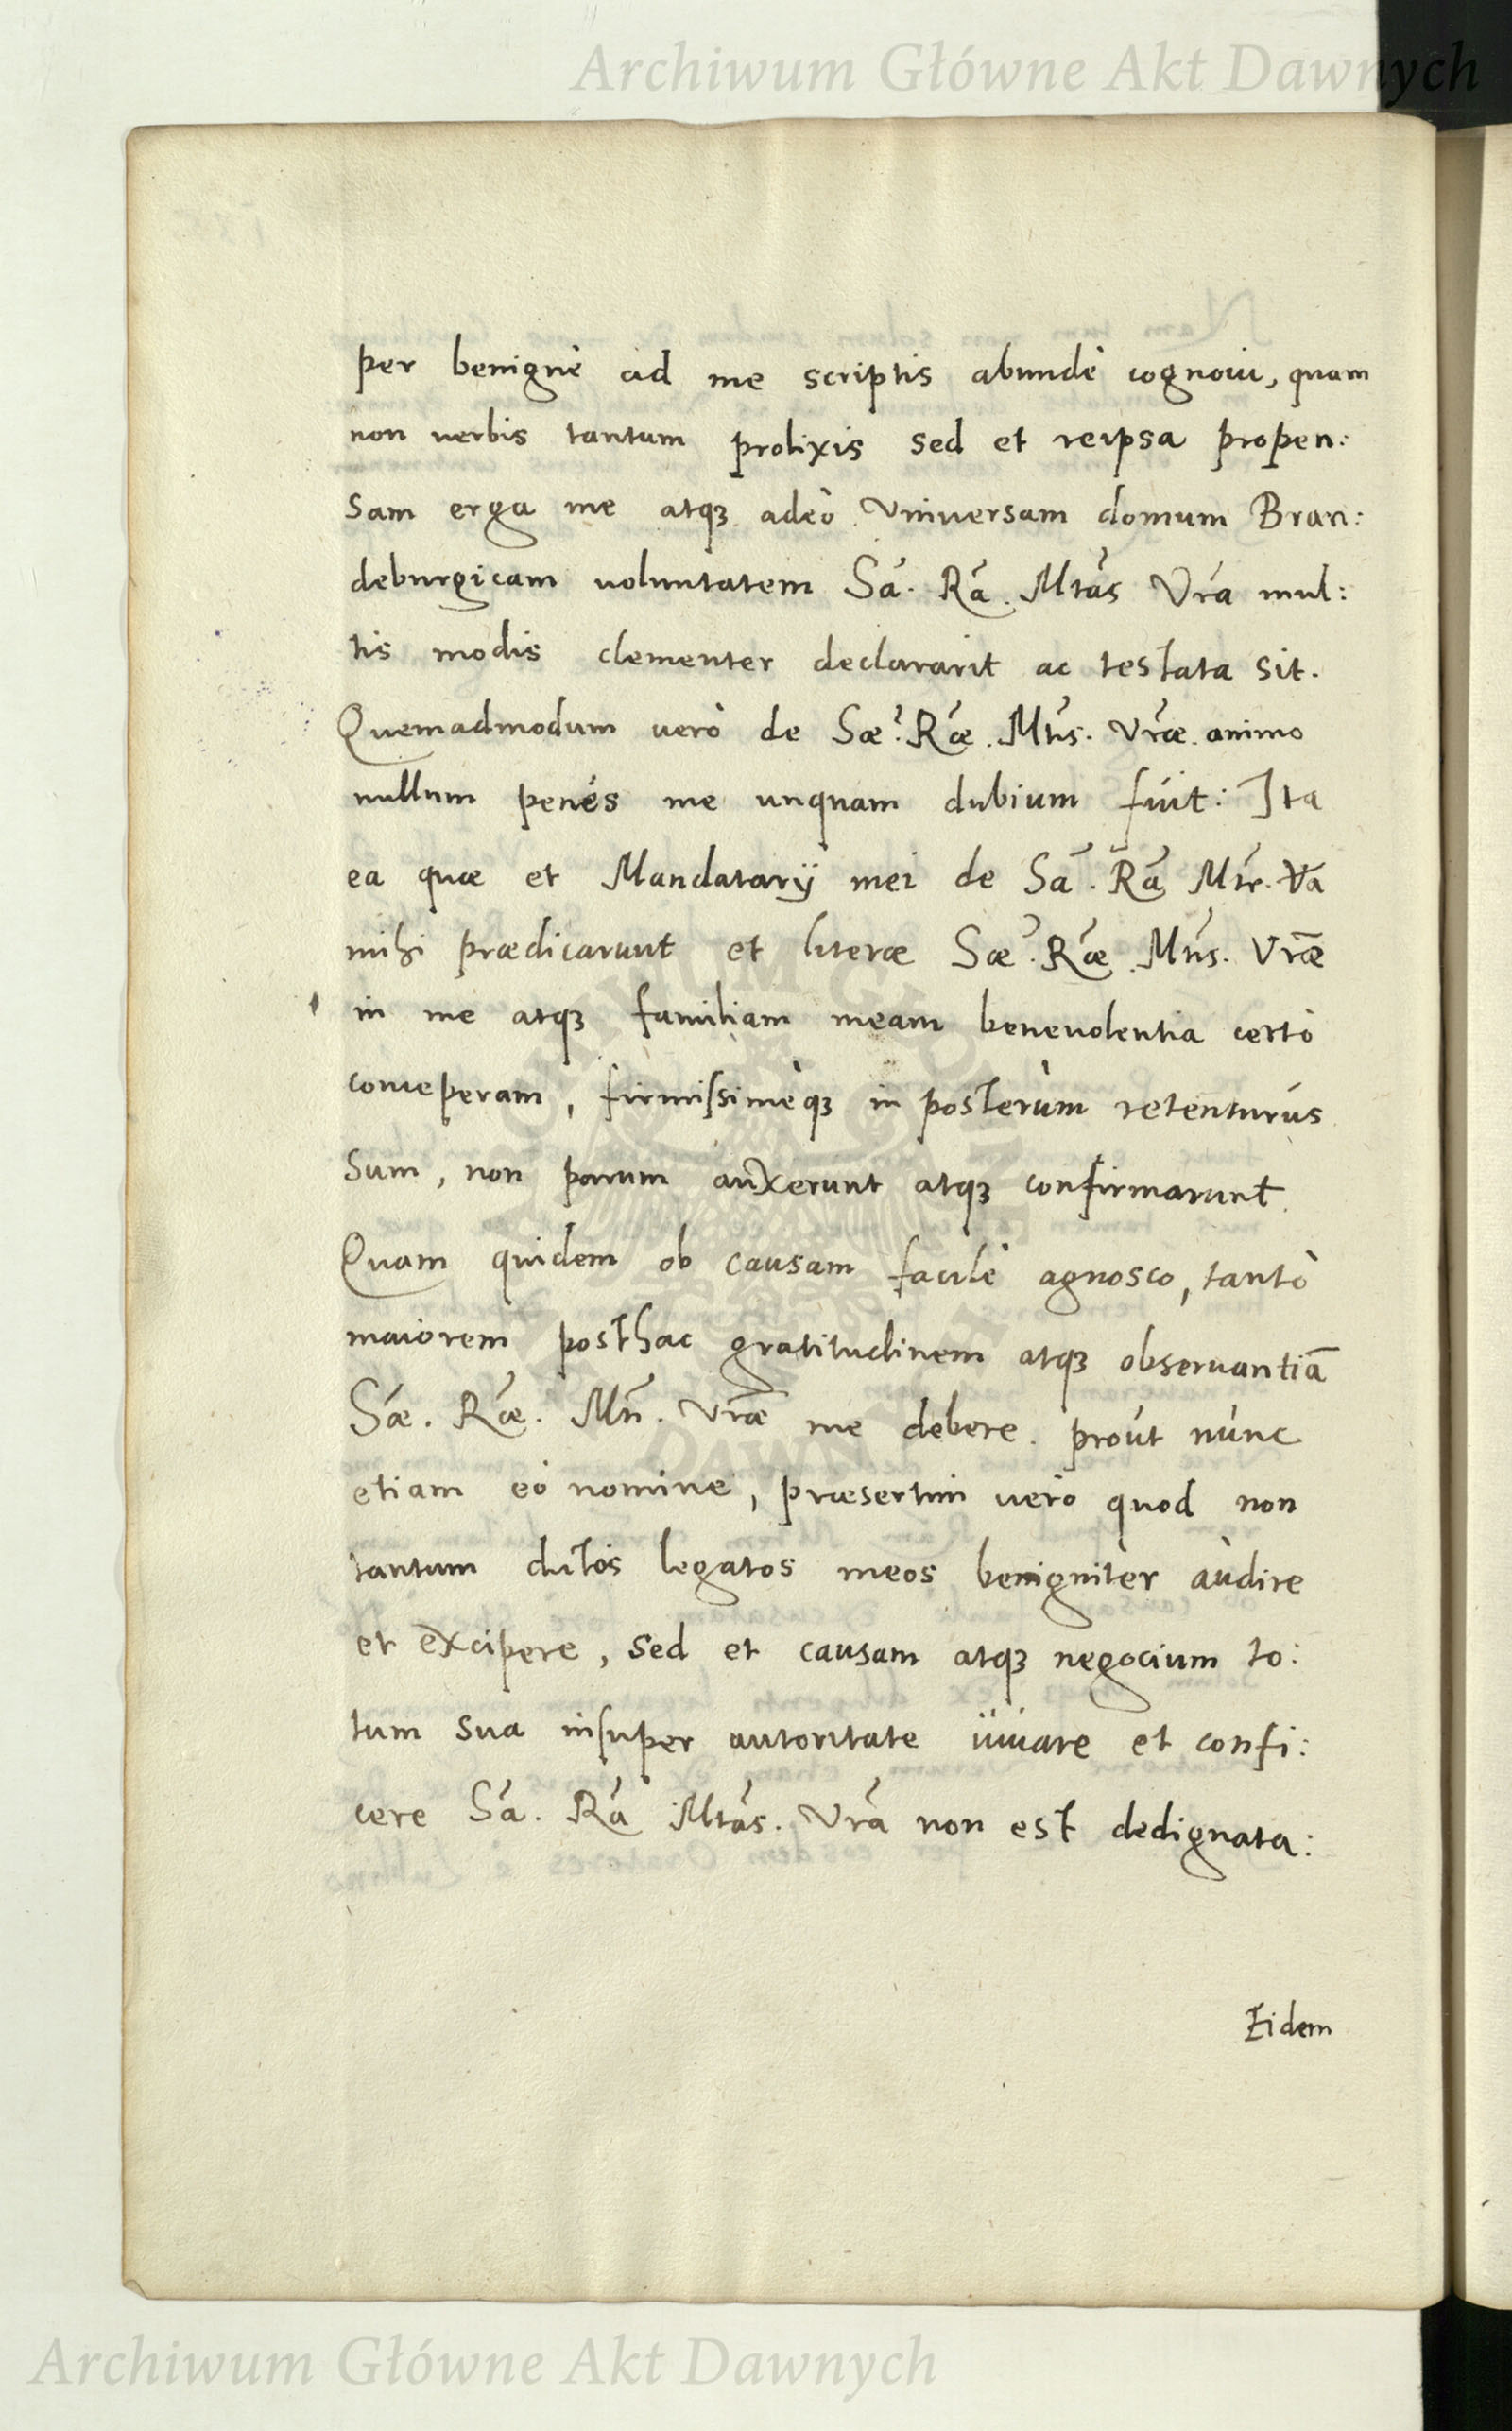 Archiwum Główne Akt Dawnych
per benignè ad me scriptis abundè cognoui, quam
non uerbis tantum prolixis sed et reipsa propen:
sam erga me atqȝ adeò Vniuersam domum Bran:
deburgicam uoluntatem Sá. Rá. Mtás Vrá mul:
tis modis clementer declararit ac testata sit.
Quemadmodum uerò de Sæ. Ræ. Mtis. Vræ animo
nullum penés me unquam dubium fuit: Ita
ea quæ et Mandatarij mei de Sá. Rá Mte. Va
mihi prædicarunt et literæ Sæ. Ræ. Mtis. Vræ
in me atqȝ familiam meam beneuolentia certò
conceperam, firmissimeqȝ in posterum retenturus
sum, non parum auxerunt atqȝ confirmarunt
Quam quidem ob causam facilè agnosco, tantò
maiorem posthac gratitudinem atqȝ obseruantiã
Sæ. Ræ. Mti. Vræ me debere. prout nunc
etiam eó nomine, præsertim uerò quod non
tantum dictos legatos meos benignitèr audire
et excipere, sed et causam atqȝ negocium to:
tum sua insuper autoritate iuuare et confi:
cere Sá. Rá Mtás. Vrá non est dedignata:
Eidem
Archiwum Główne Akt Dawnych